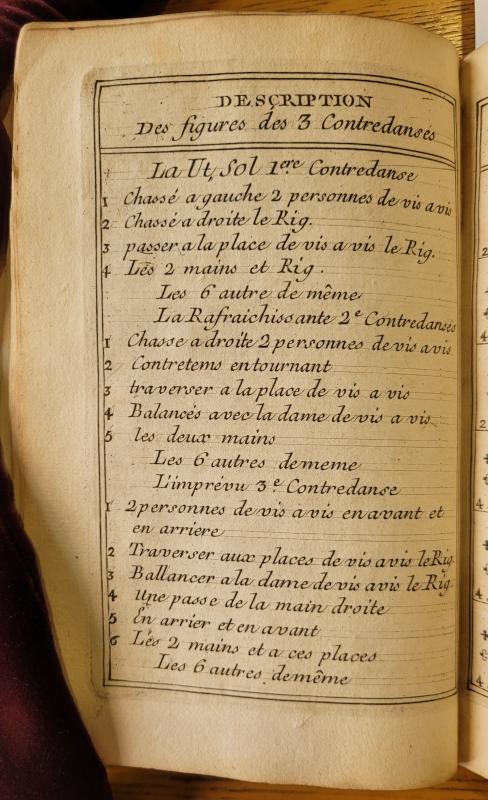 DESCRIPTION
Des figures des 3 Contredanses
La Ut, Sol 1ere Contredanse
1 Chassé a gauche 2 personnes de vis a vis
2 Chassé a droite le Rig.
3 passer a la place de vis a vis le Rig.
4 Les 2 mains et Rig.
Les 6 autre de même
La Rafraichissante 2e Contredanses
1 Chasse a droite 2 personnes de vis a vis
2 Contretems en tournant
3 traverser a la place de vis a vis
4 Balancés avec la dame de vis a vis
5 les deux mains
Les 6 autres de meme
L'imprévu 3e Contredanse
1 2 personnes de vis a vis en avant et
en arriere
2 Traverser aux places de vis a vis le Rig.
3 Ballancer a la dame de vis a vis le Rig.
4 Une passe de la main droite
5 En arrier et en avant
6 Les 2 mains et a ces places
Les 6 autres de même
2
4
2
4
4